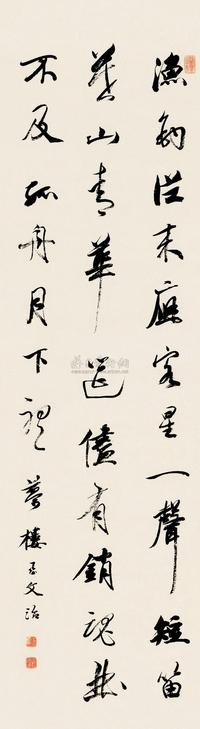 漁釣從來應客星一聲短笛
暮山青華筵儘有銷魂
不及孤舟月下聽
夢樓王文治